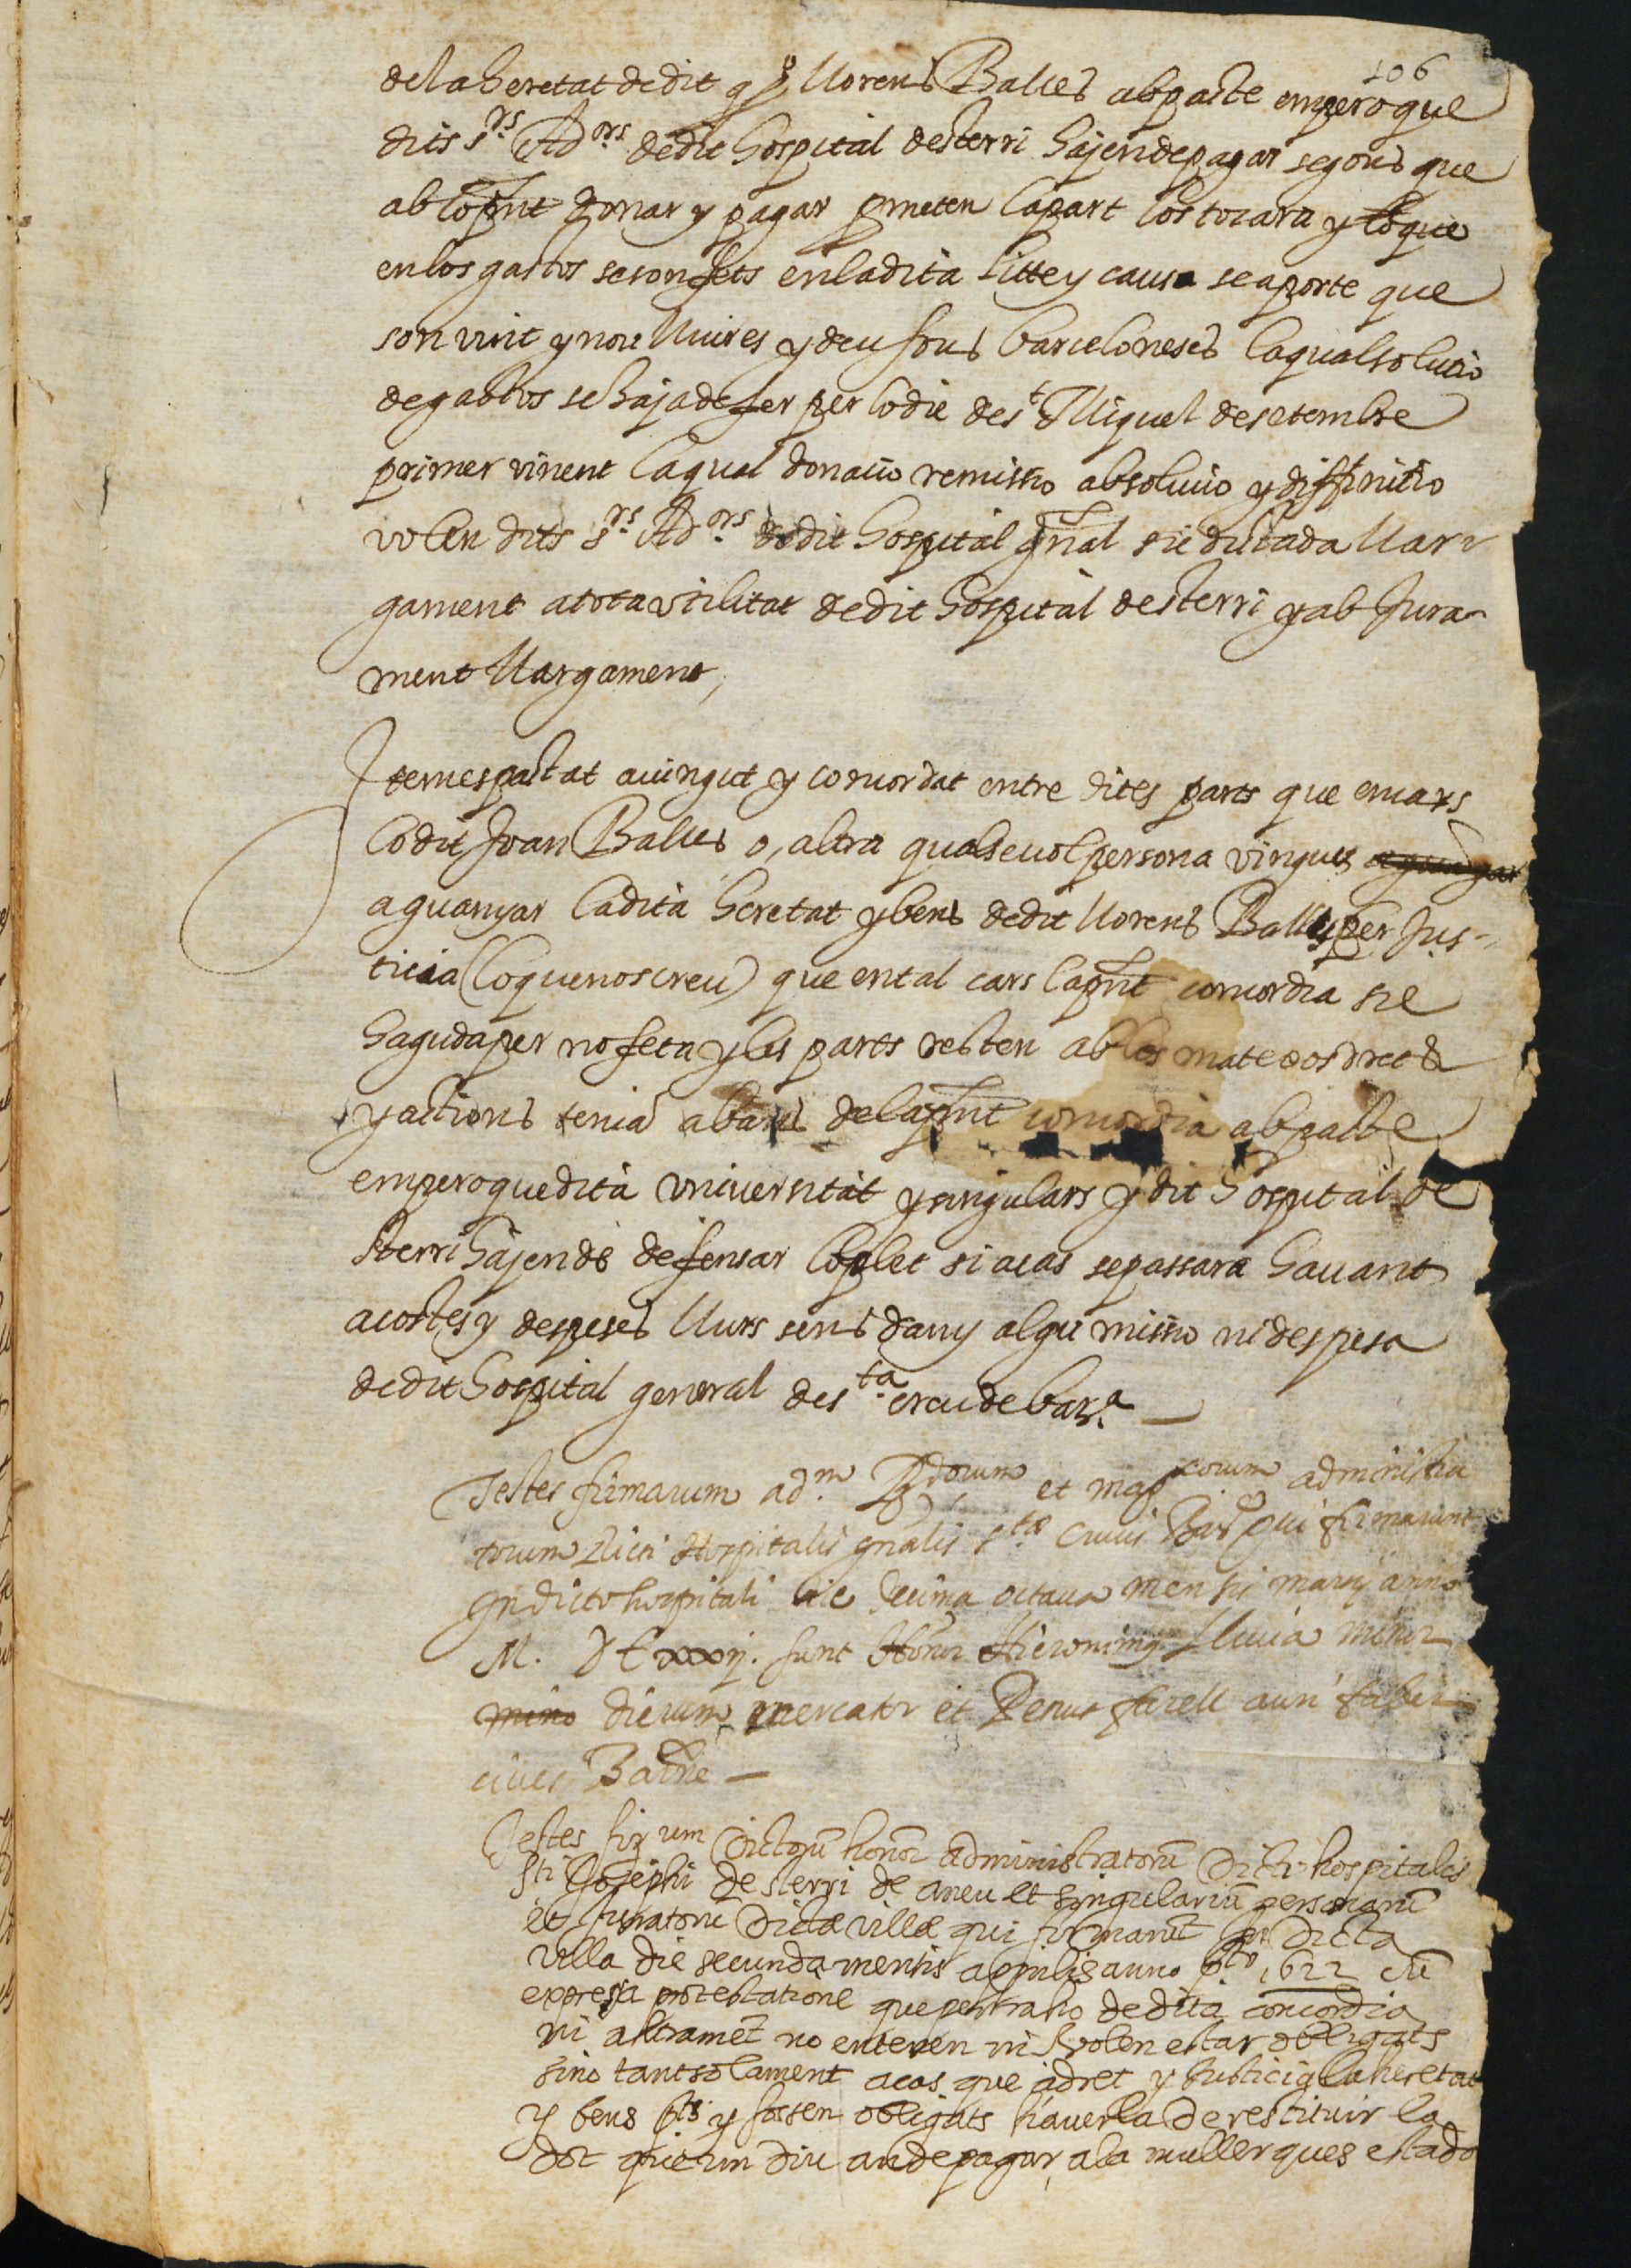 106
dela heretat de dit q° Llorens Balles ab pacte empero que
dits s.rs Ad.ors de dit hospital desterri hajen de pagar segons que
ab lo pnt donar y pagar prmeten la part los tocara y lo que
en los gastos se son fets en la dita litte y causa se aporte que
son vint y nou lliures y deu sous barceloneses la qual solucio
de gastos se haja de fer per lo die de s.t Miquel de setembre
primer vinent la qual donatio remissio absolucio y diffinitio
volen dits s.rs Ad.ors de dit hospital gnal sie dictada llar
gament a tota utilitat de dit hospital desterri y ab jura
ment llargament,
Item es pactat avingut y concordat entre dites parts que en cars
lo dit Joan Balles o, altra qualsevol persona vingues a guanyar
a guanyar la dita heretat y bens de dit Llorens Balles per Jus
ticia (lo que nos creu) que en tal cars la pnt concordia sie
haguda per no feta y les parts resten ab los mateixos drets
y actions tenia abans de la pnt concordia ab pacte
empero que dita universitat y singulars y dit hospital de
sterri hajen de defensar lo plet si acas se passara havant
a costes y despeses llurs sens dany algu missio ni despesa
de dit hospital general de s.ta creu de bar.a
Testes firmarum ad.m Rdorum et mag.corum administra
torum dicti Hospitalis gnalis s.tæ Crucis Bar.e qui firmarunt
in dicto hospitali die decima octava mensis marcij anno
M. DC xxij. sunt Honor. Hieronimus Lluvia minor
mino dierum mercator et Petrus ferell auri faber
cives Barne
Testes firmarum dictorum honor administratorum dicti hospitalis
Sti Josephi de sterri de aneu et singularium personarum
et juratoru dictæ villæ qui firmarunt in dicta
villa die secunda mensis aprilis anno p.to 1622 cum
expressa protestatione que per raho de dita concordia
ni altrament no entenen ni volen estar obligats
sino tant solament acas que a dret y Justicia la heretat
y bens p.ts y fossen obligats haverla de restituir la
dot que un diu an de pagar a la muller ques estada